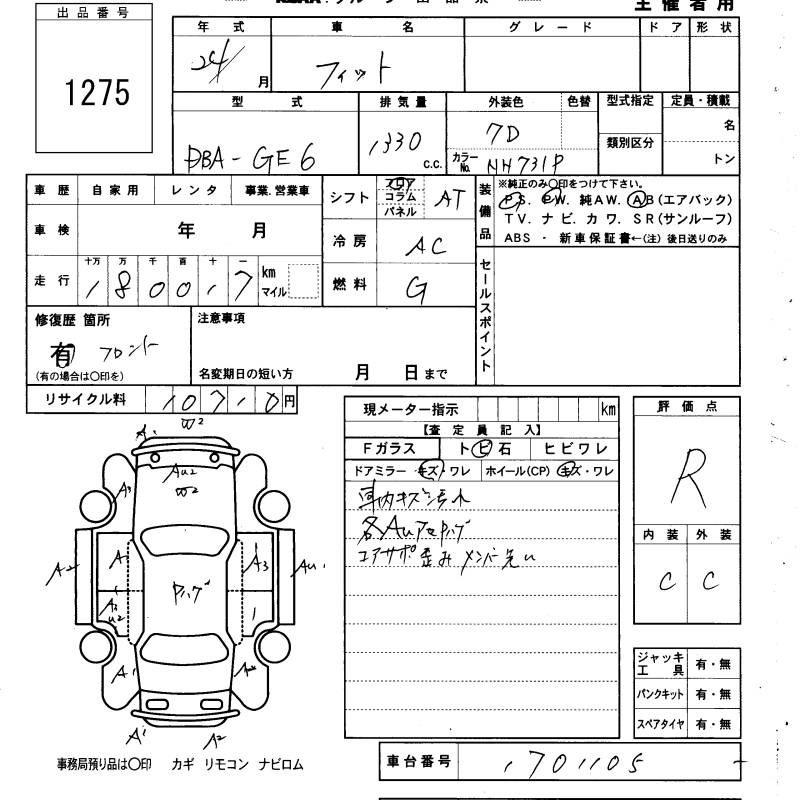 出品番号
1275
主催者用
年式 車名 グレード ドア 形状
24/ 月 フィット
型式 排気量 外装色 色替 型式指定 定員・積載
DBA-GE6 1330 c.c. 7D カラーNo. NH731P 類別区分 名 トン
車歴 自家用 レンタ 事業.営業車
シフト フロア コラム パネル AT
装備品 ※純正のみ〇印をつけて下さい。
P.S. P.W. 純AW. AB(エアバック)
TV. ナビ. カワ. SR(サンルーフ)
ABS ・ 新車保証書←(注) 後日送りのみ
車検 年 月
冷房 AC
走行 十万 万 千 百 十 一 km マイル
180017
燃料 G
セールスポイント
修復歴 箇所
有 フロント
(有の場合は〇印を)
注意事項
名変期日の短い方 月 日まで
リサイクル料 10710円
現メーター指示 km
【査定員記入】
Fガラス トビ石 ヒビワレ
ドアミラー キズ・ワレ ホイール(CP) キズ・ワレ
車内キズ汚れ
コアサポ歪み メンバー
評価点
R
内装 外装
C C
A1 W2
AU2
W2
A3
A2 A1 A3 AU1
A3
U2
1
A1
A1 A2
ジャッキ工具 有・無
パンクキット 有・無
スペアタイヤ 有・無
事務局預り品は〇印 カギ リモコン ナビロム
車台番号 1701105